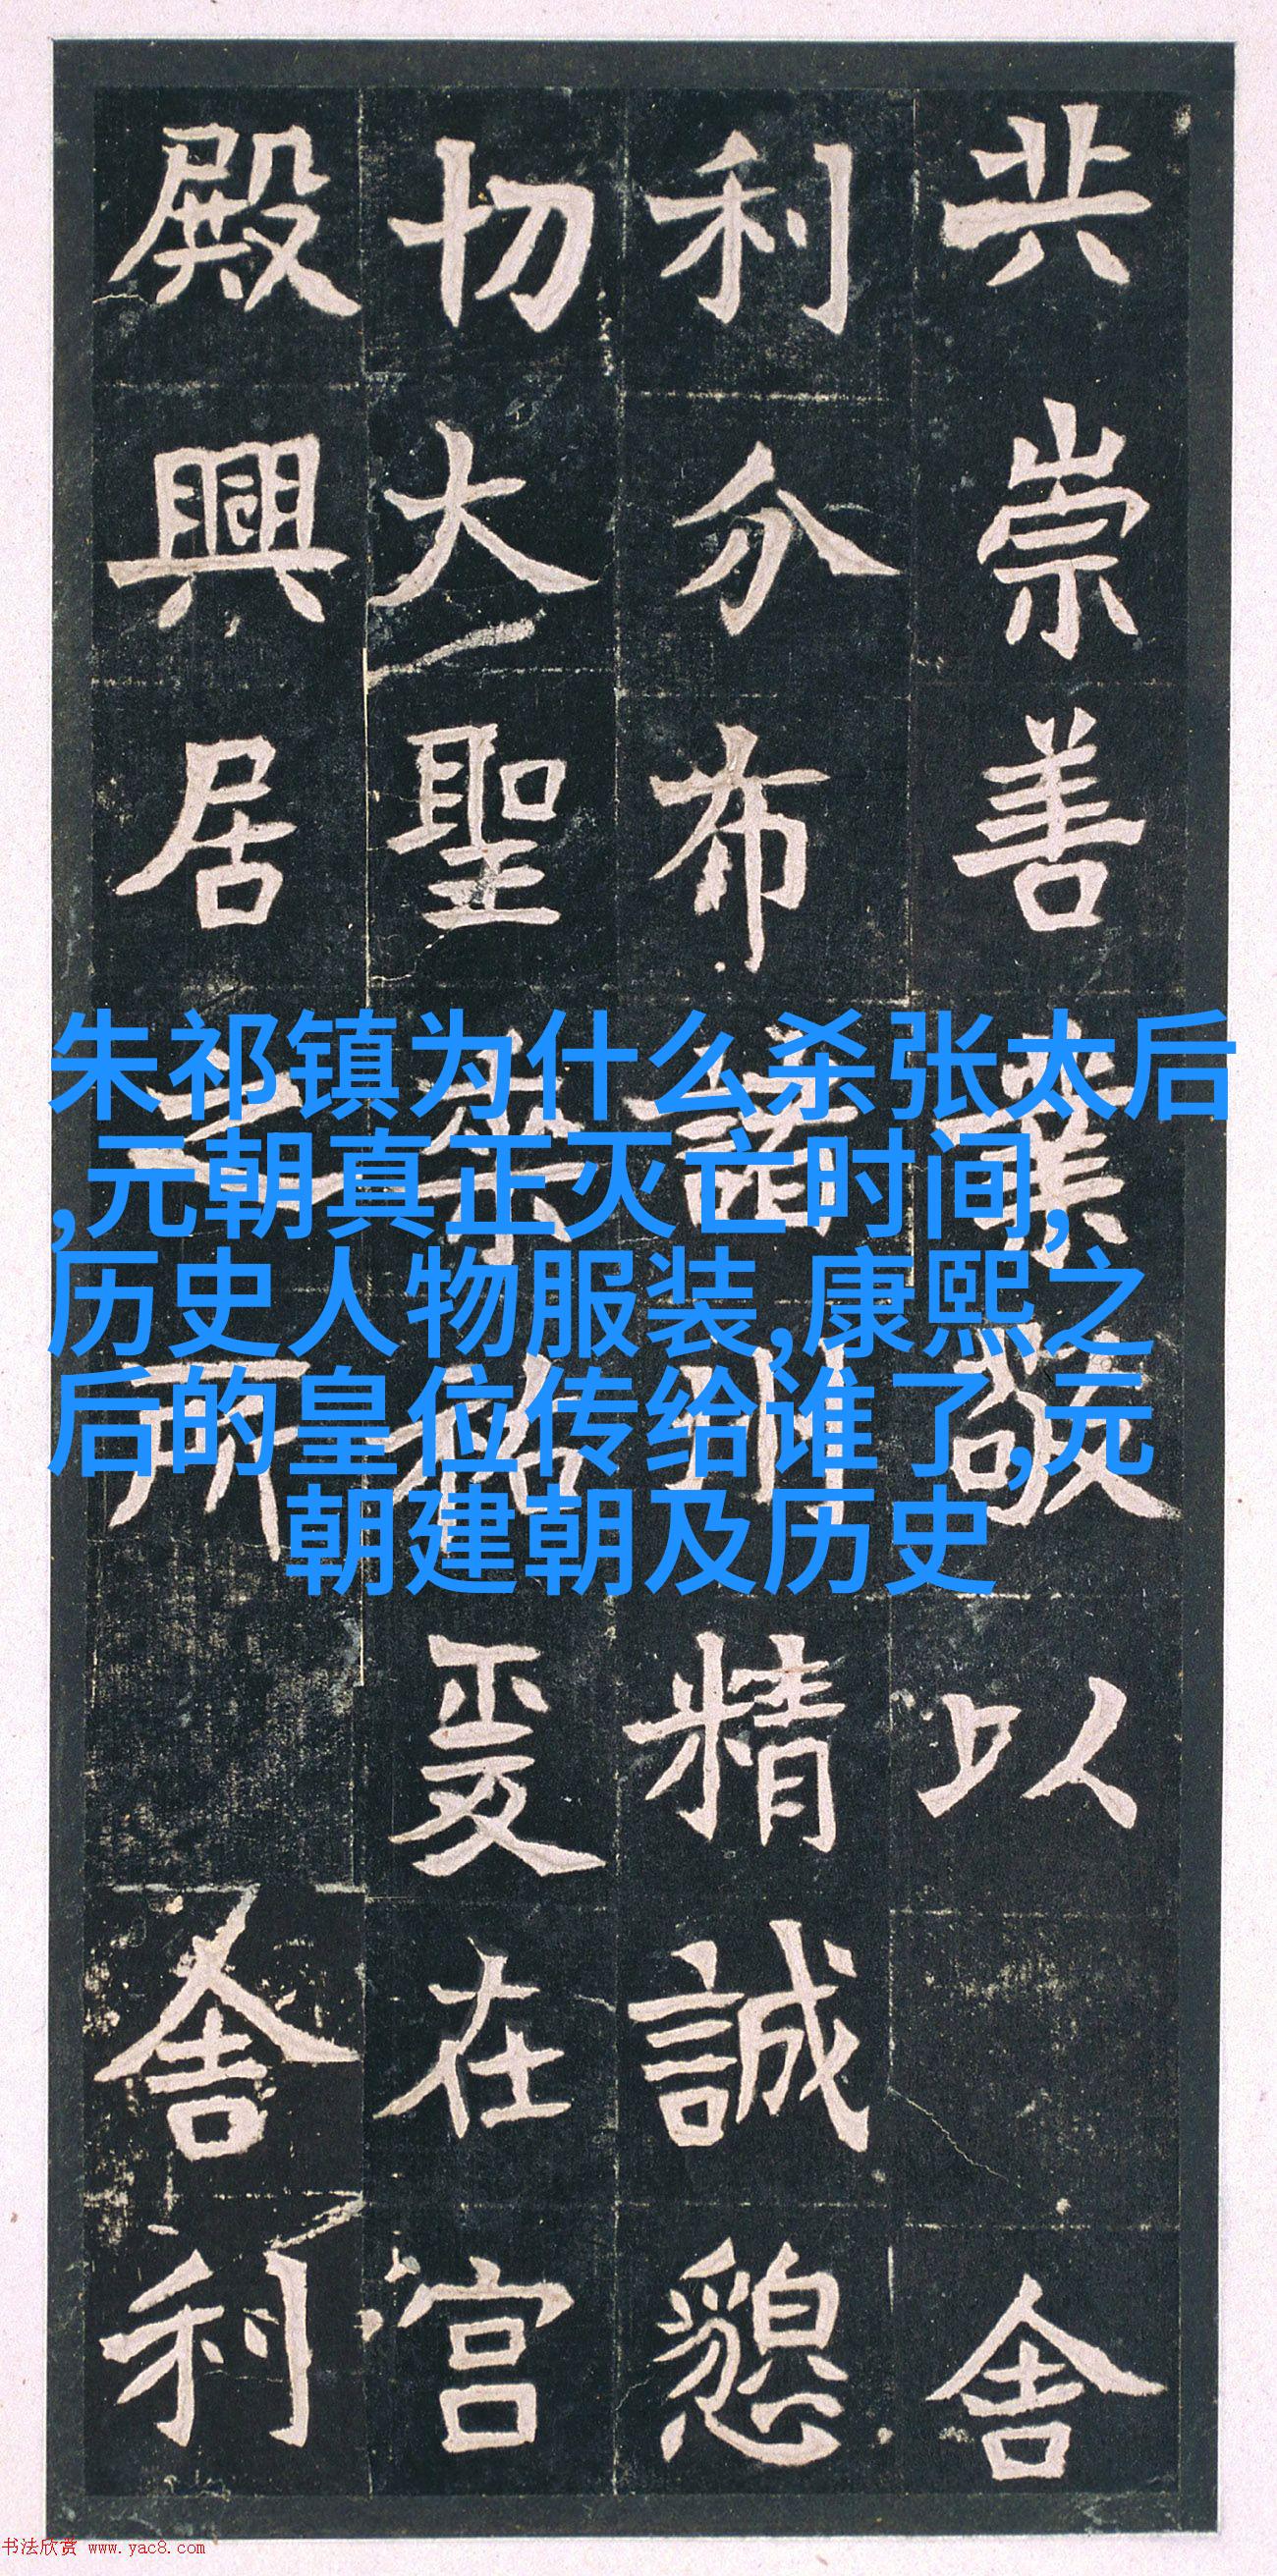 共崇善業敬以舍
利分布諸州精誠懇
切大聖爰在宮
殿興居之所舍利
朱祁镇为什么杀张太后
,元朝真正灭亡时间,
历史人物服装,康熙之
后的皇位传给谁了,元
朝建朝及历史
书法欣赏 www.yac8.com